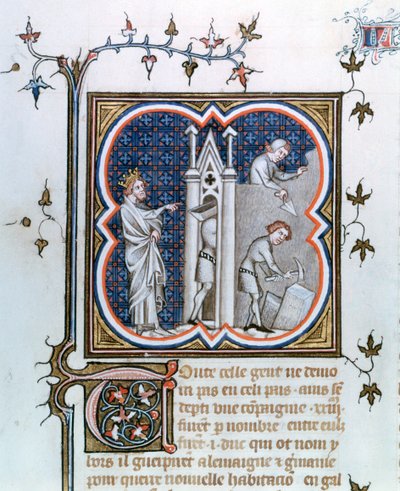 Toute celle gent ne demo
ra pas en celi pais · ains se
depti vne cōpaignie · xxiij
furēt p nombre · entre eulx
furēt · i · duc qui ot nom y
bors il guerpirēt alemaigne & gmanie
pour querre nouuelle habitaciō en gal